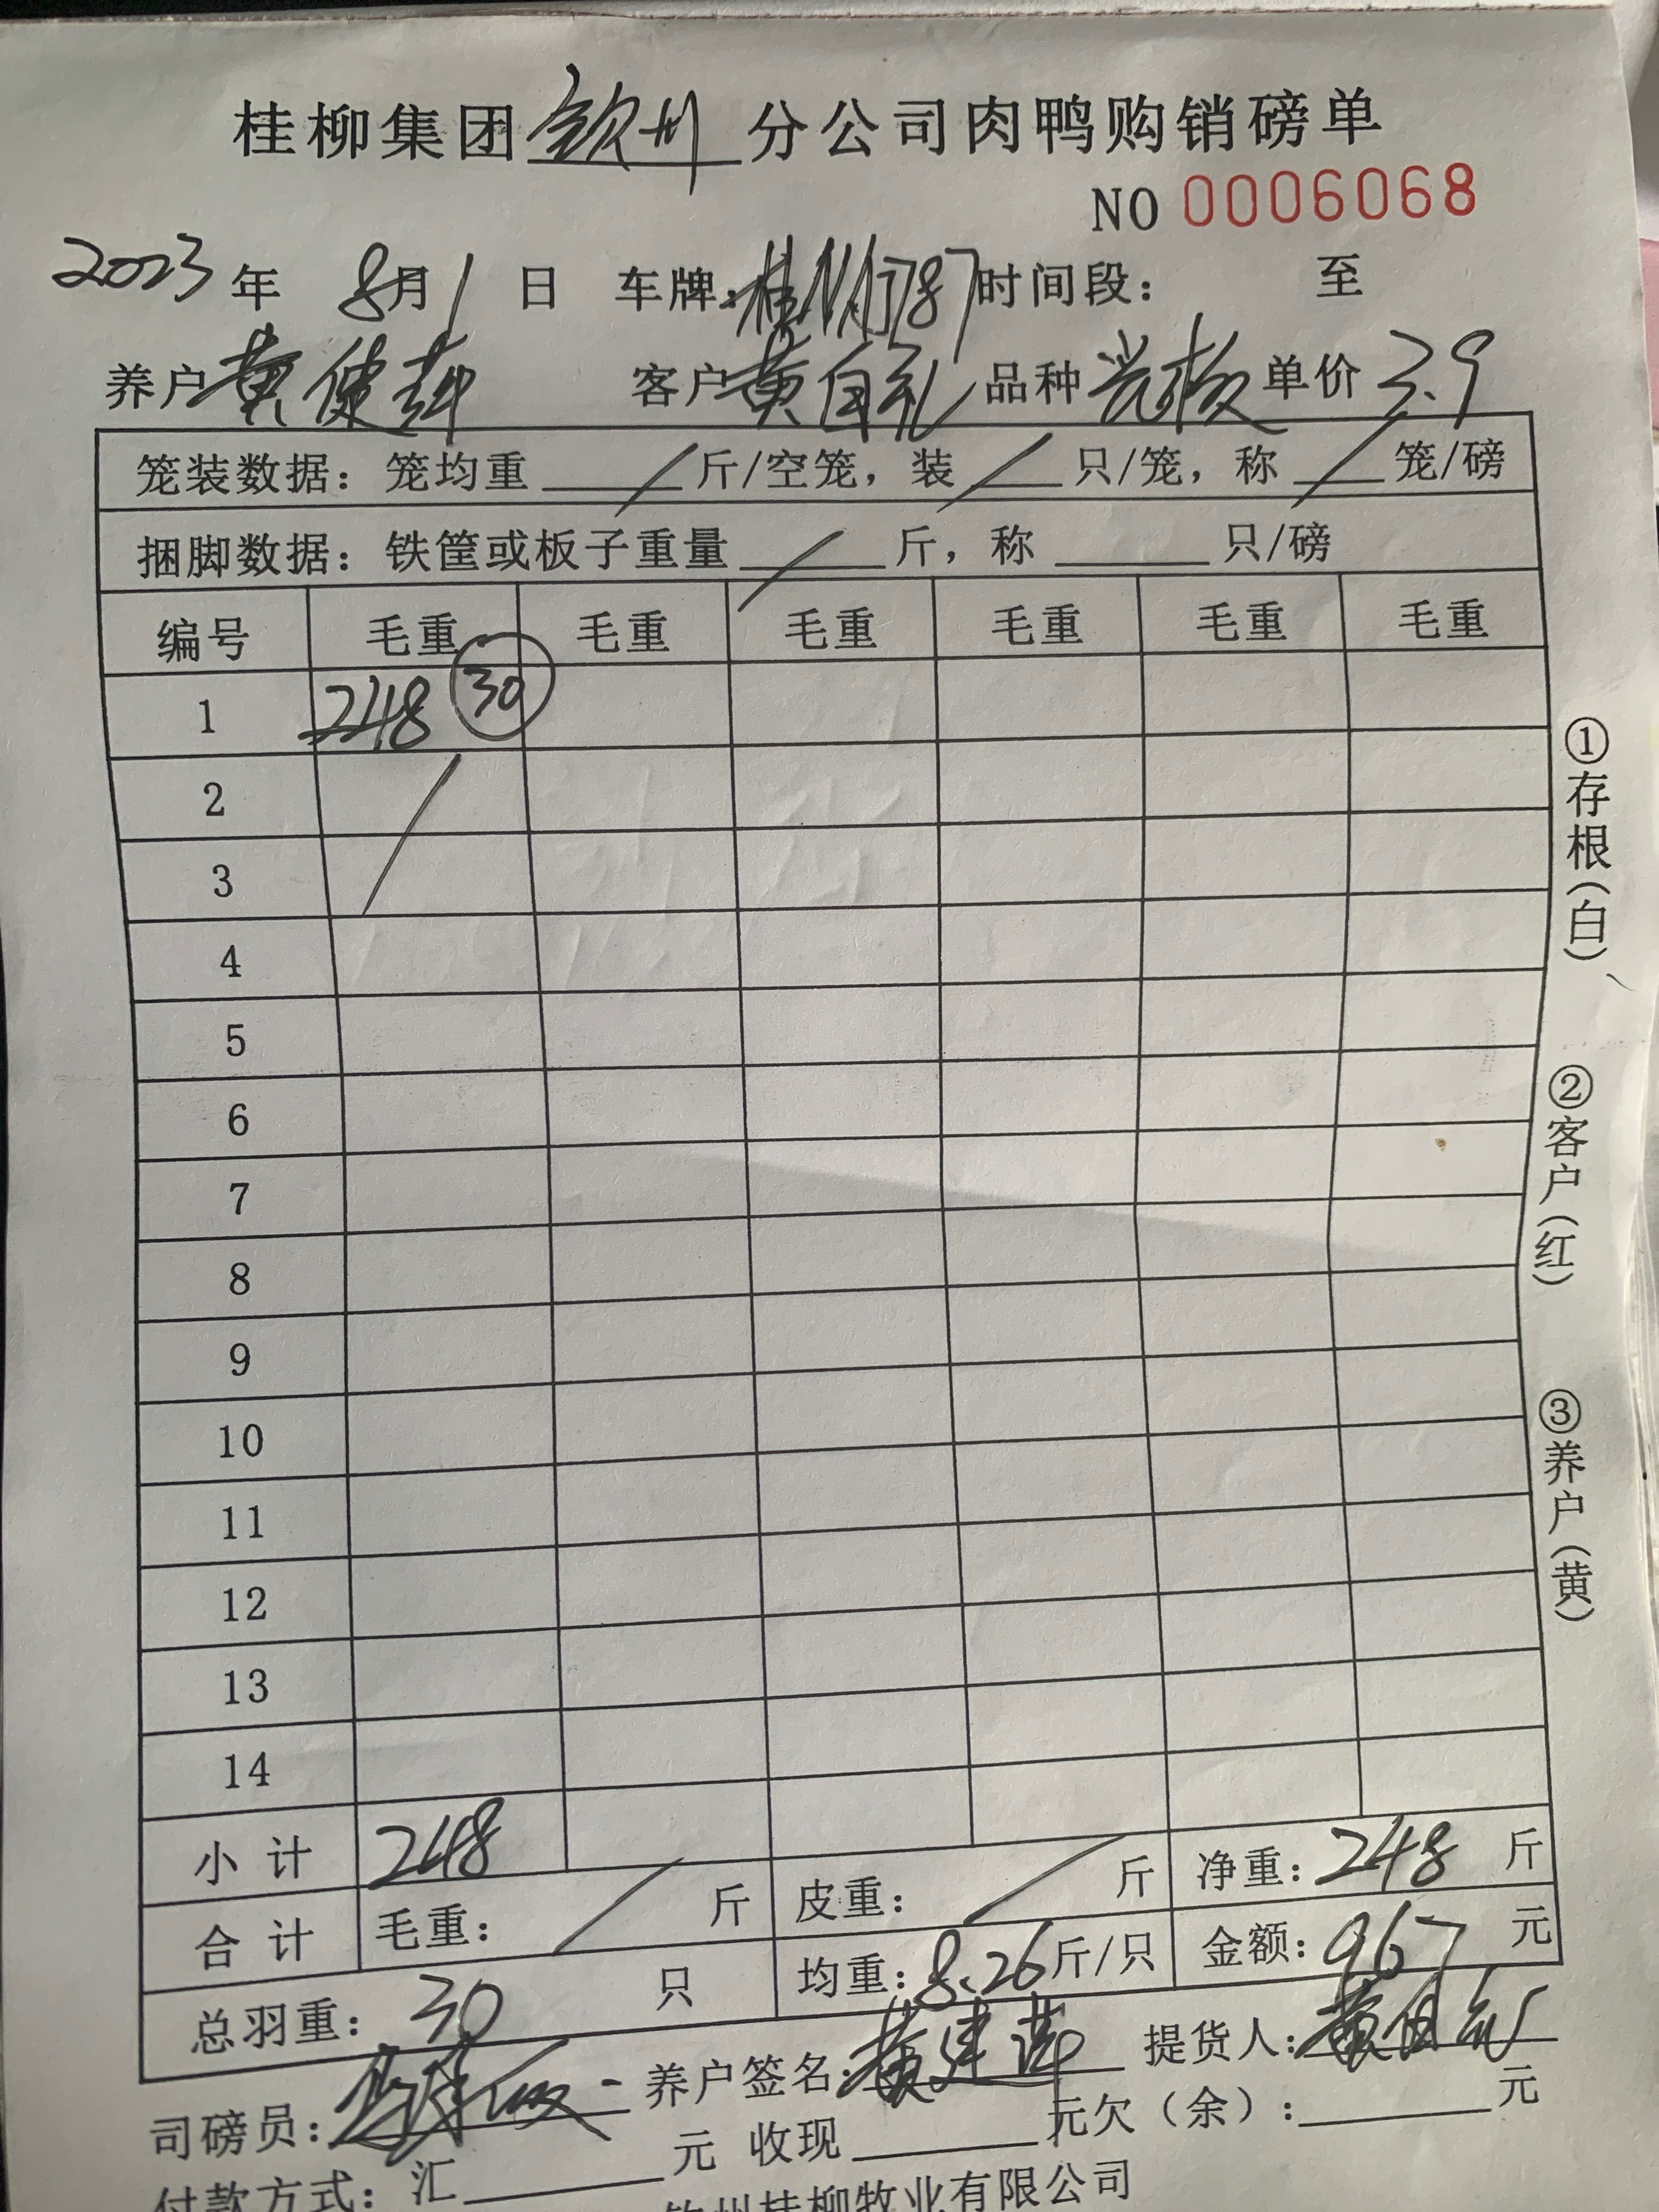 桂柳集团钦州分公司肉鸭购销磅单
NO 0006068
2023年 8月1日 车牌: 时间段: 至
养户 黄健 客户 黄自礼 品种 单价 3.9
笼装数据: 笼均重 / 斤/空笼, 装 / 只/笼, 称 / 笼/磅
捆脚数据: 铁筐或板子重量 / 斤, 称 只/磅
编号 毛重 毛重 毛重 毛重 毛重 毛重
1 248 30
2 /
3
4
5
6
7
8
9
10
11
12
13
14
小计 248
合计 毛重: / 斤 皮重: / 斤 净重: 248 斤
总羽重: 30 只 均重: 8.26 斤/只 金额: 967 元
司磅员: 养户签名: 黄建 提货人: 黄自礼
付款方式: 汇 元 收现 元欠(余): 元
钦州桂柳牧业有限公司
①存根(白)
②客户(红)
③养户(黄)